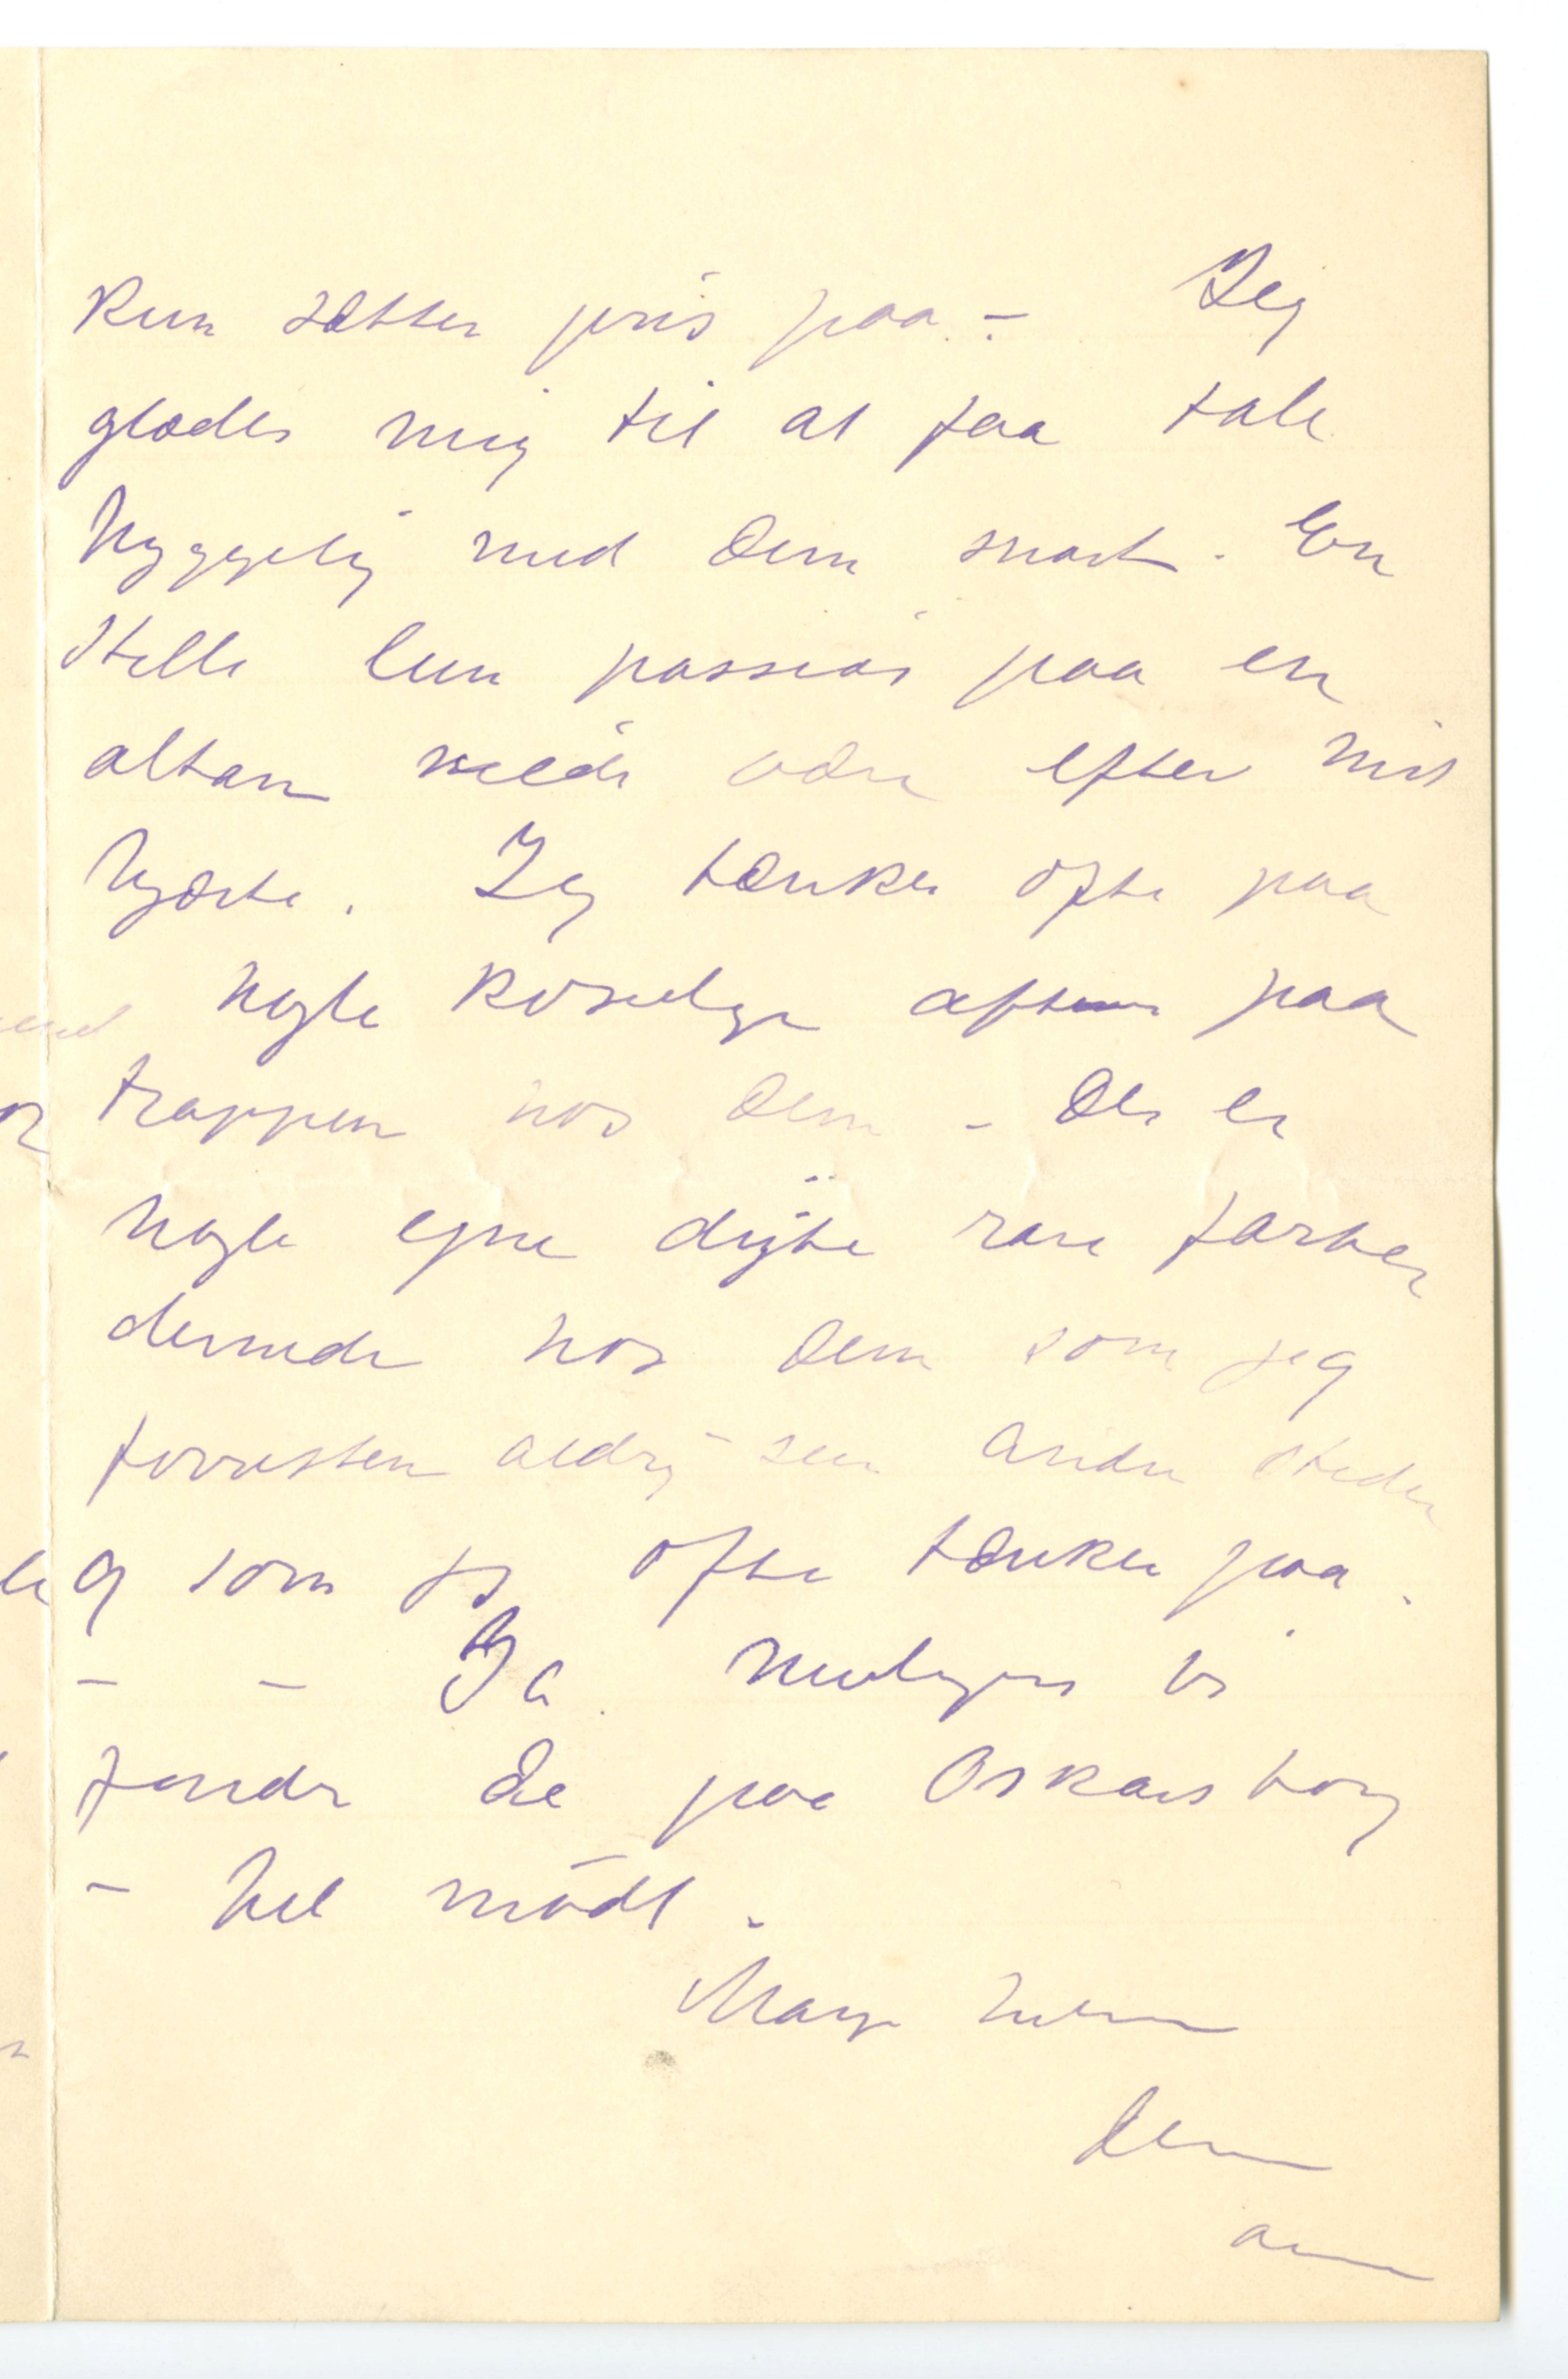 kun sætter pris paa. – Jeg
glæder mig til at faa tale
hyggelig med Dem snart. En
stille lun passiar paa en
altan vilde være efter mit
hjærte. Jeg tænker ofte paa
nogle koselige aftener paa
trappen hos Dem – Der er
nogle egne dybe rare farver
dernede hos Dem som jeg
forresten aldrig ser andre steder
og som jeg ofte tænker paa.
– – Ja muligens vi
finder De paa Oskarsborg
– Vel mødt.
Mange hilsener
Deres